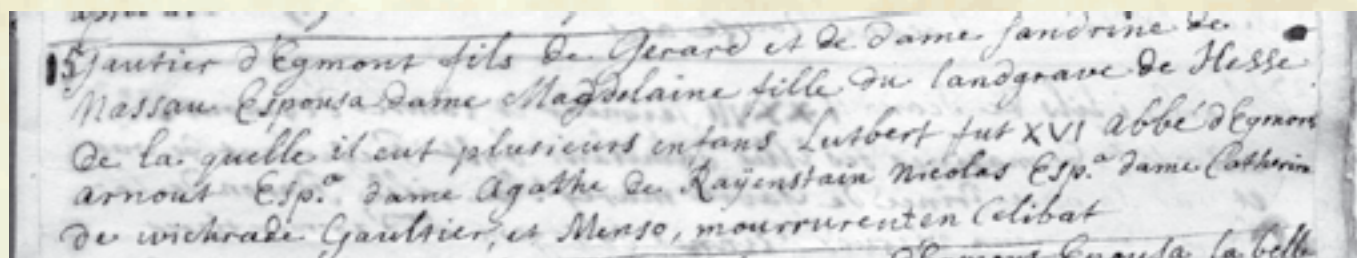 15 Gautier d'Egmont fils de Gerard et de dame Sandrine de
Nassau Espousa dame Magdelaine fille du landgrave de Hesse
de la quelle il eut plusieurs enfans Lutbert fut XVI Abbé d'Egmont
arnout Esp.ª dame Agathe de Raÿenstain Nicolas Esp.ª dame Catherin
de wichrade Gaultier, et Menso, mourrurent en Celibat
Espousa la belle